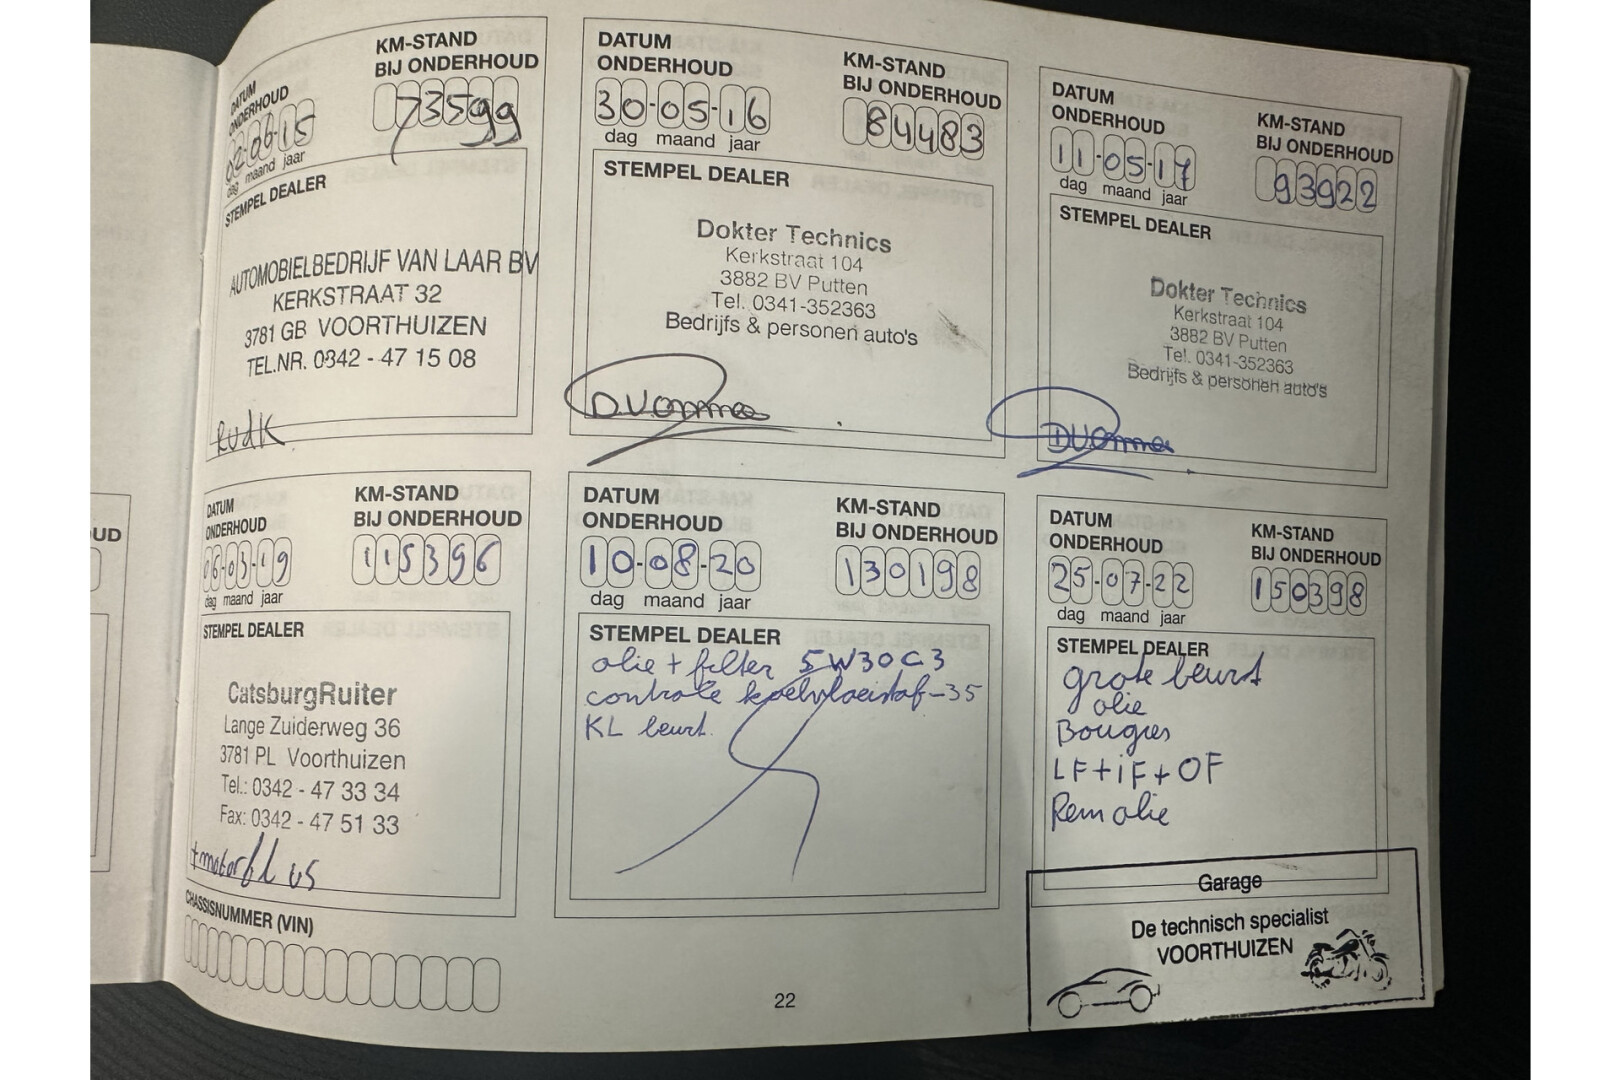 DATUM
ONDERHOUD
KM-STAND
BIJ ONDERHOUD
02-06-15
73599
dag maand jaar
STEMPEL DEALER
AUTOMOBIELBEDRIJF VAN LAAR BV
KERKSTRAAT 32
3781 GB VOORTHUIZEN
TEL.NR. 0342 - 47 15 08
RudK
DATUM
ONDERHOUD
KM-STAND
BIJ ONDERHOUD
30-05-16
84483
dag maand jaar
STEMPEL DEALER
Dokter Technics
Kerkstraat 104
3882 BV Putten
Tel. 0341-352363
Bedrijfs & personen auto's
DATUM
ONDERHOUD
KM-STAND
BIJ ONDERHOUD
11-05-17
93922
dag maand jaar
STEMPEL DEALER
Dokter Technics
Kerkstraat 104
3882 BV Putten
Tel. 0341-352363
Bedrijfs & personen auto's
UD
DATUM
ONDERHOUD
KM-STAND
BIJ ONDERHOUD
06-03-19
115396
dag maand jaar
STEMPEL DEALER
CatsburgRuiter
Lange Zuiderweg 36
3781 PL Voorthuizen
Tel.: 0342 - 47 33 34
Fax: 0342 - 47 51 33
CHASSISNUMMER (VIN)
DATUM
ONDERHOUD
KM-STAND
BIJ ONDERHOUD
10-08-20
130198
dag maand jaar
STEMPEL DEALER
olie + filter 5W30C3
controle koelvloeistof-35
KL beurt.
DATUM
ONDERHOUD
KM-STAND
BIJ ONDERHOUD
25-07-22
150398
dag maand jaar
STEMPEL DEALER
grote beurt
olie
Bougies
LF+iF+OF
Rem olie
Garage
De technisch specialist
VOORTHUIZEN
22